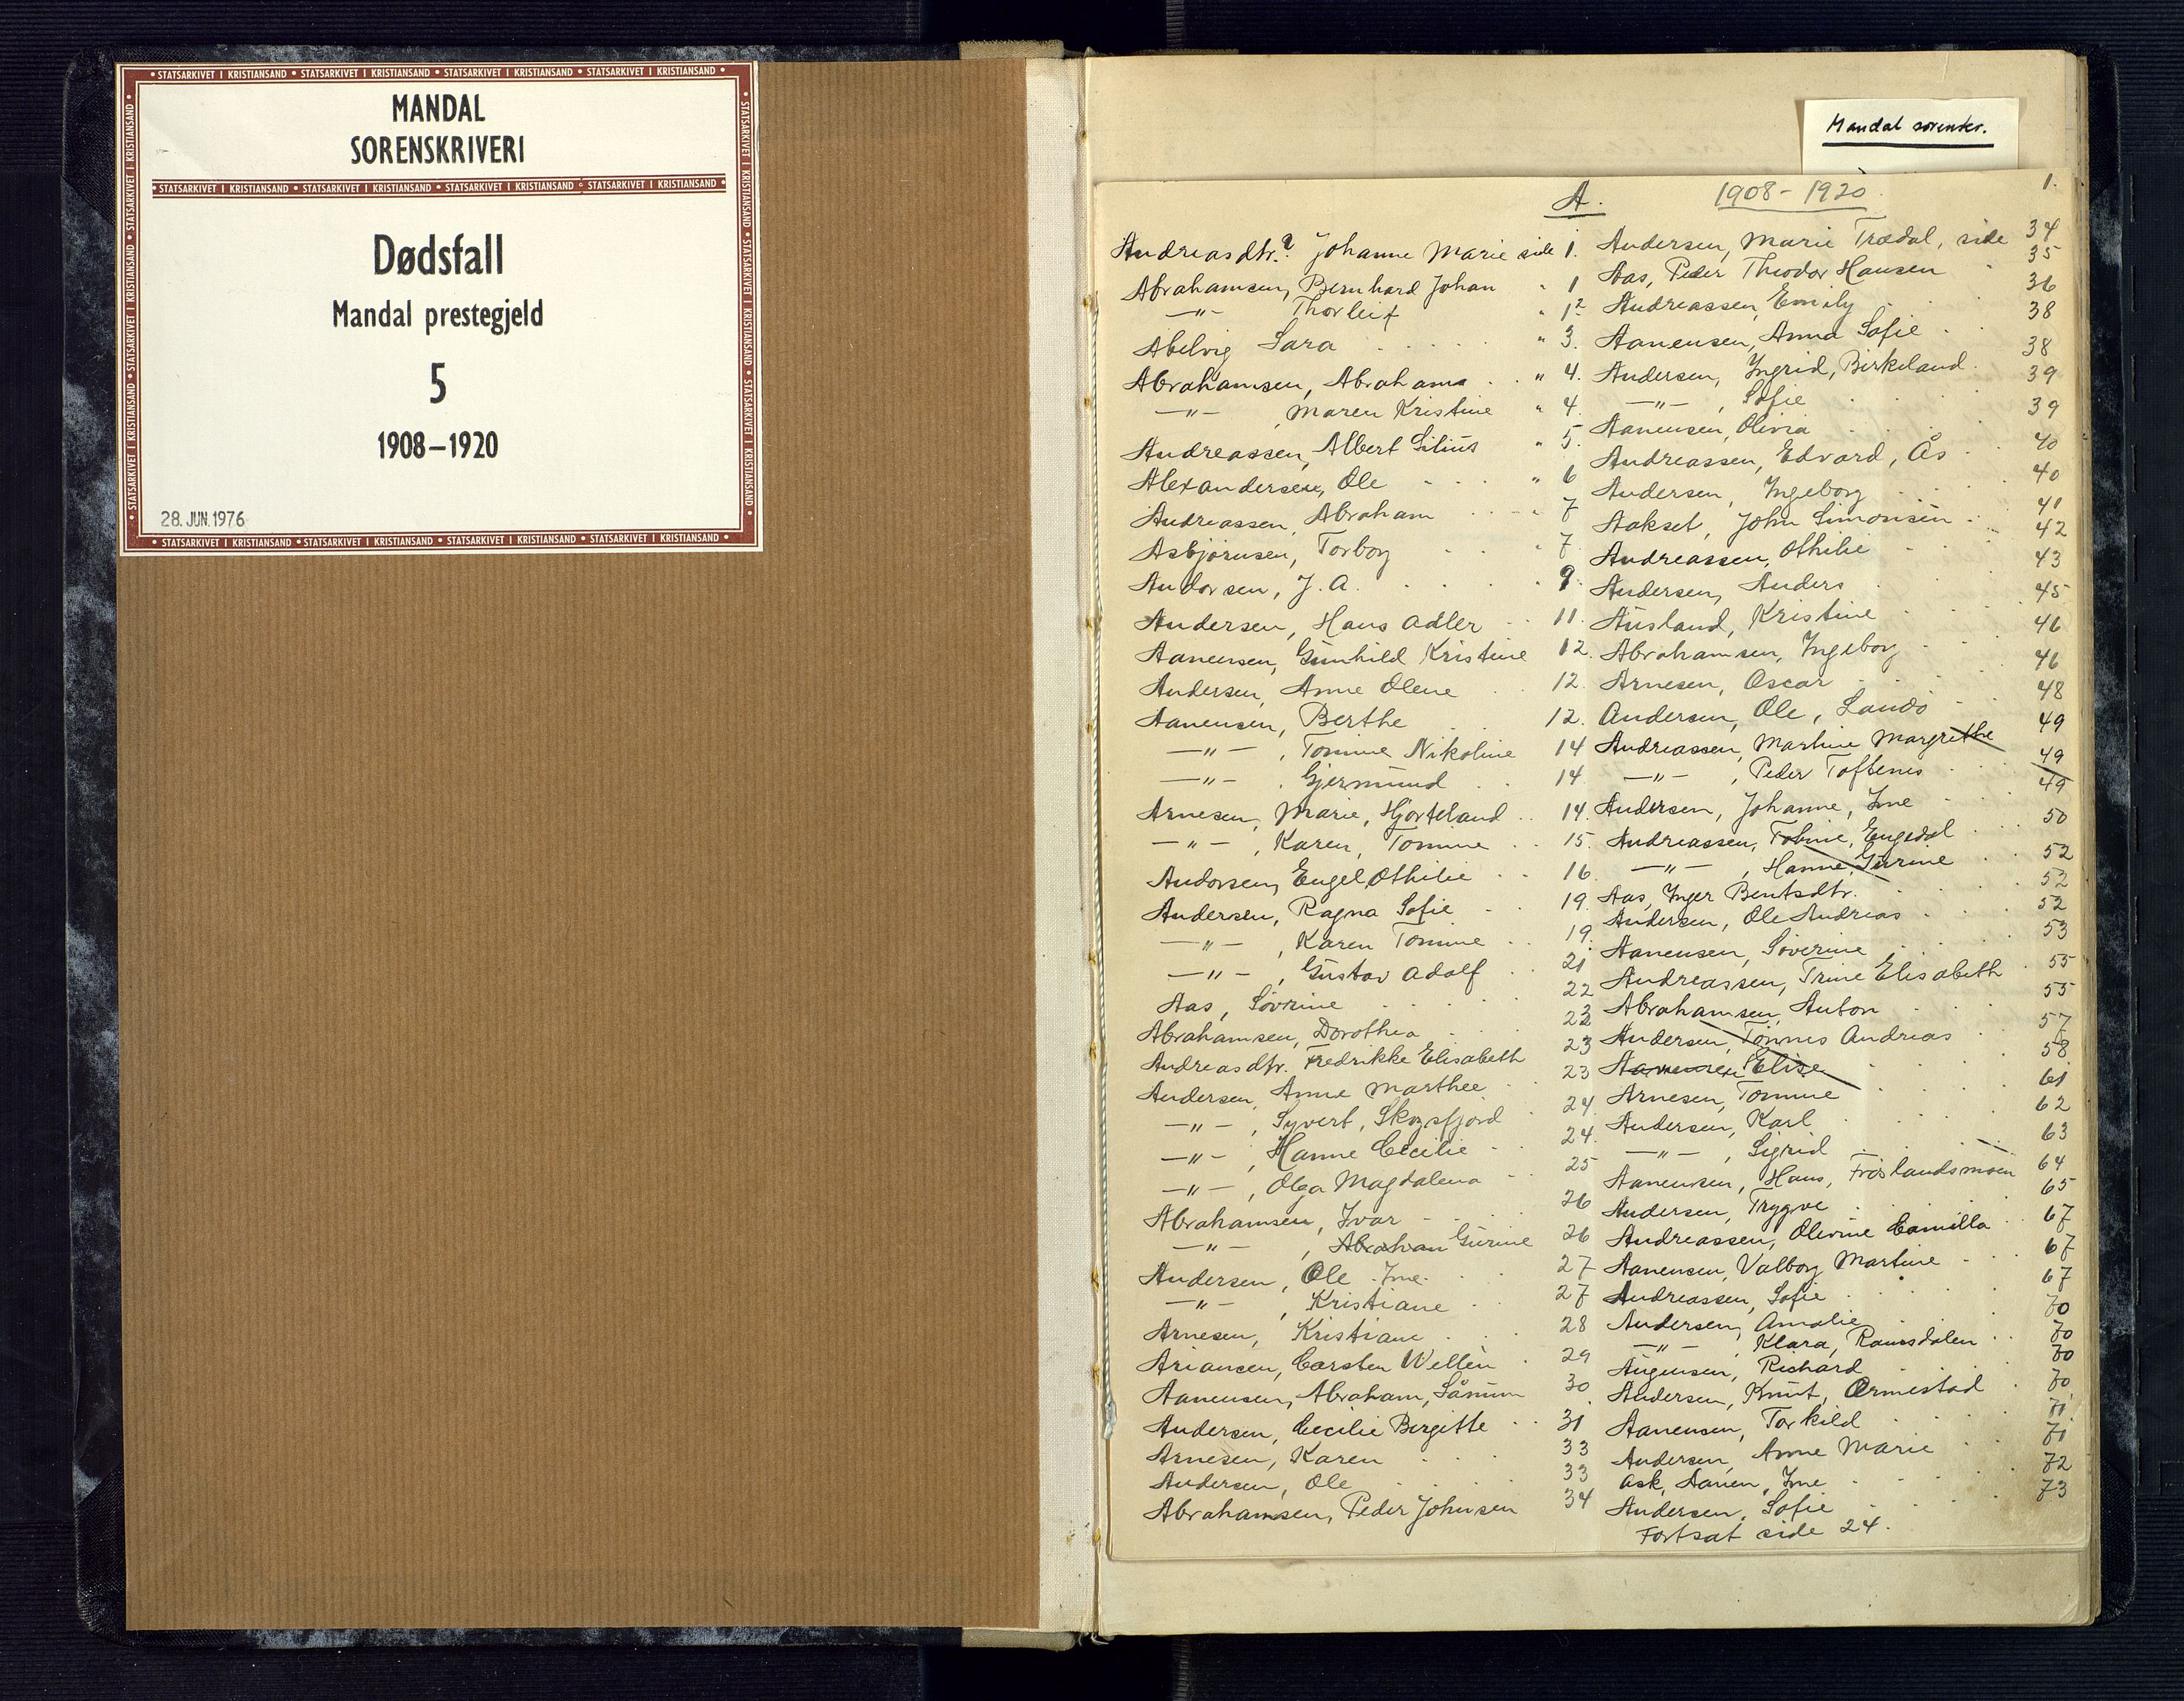 STATSARKIVET I KRISTIANSAND • STATSARKIVET I KRISTIANSAND • STATSARKIVET I KRISTIANSAND • STATSARKIVET I KRISTIANSAND
MANDAL
SORENSKRIVERI
STATSARKIVET I KRISTIANSAND • STATSARKIVET I KRISTIANSAND • STATSARKIVET I KRISTIANSAND • STATSARKIVET I KRISTIANSAND
Dødsfall
Mandal prestegjeld
5
1908–1920
28. JUN. 1976
STATSARKIVET I KRISTIANSAND • STATSARKIVET I KRISTIANSAND • STATSARKIVET I KRISTIANSAND • STATSARKIVET I KRISTIANSAND
Mandal sorenskr.
A. 1908 - 1920. 1.
Andreasdtr.? Johanne Marie side 1.
Abrahamsen, Bernhard Johan " 1
—"— Thorleif " 1
Abelvig Sara " 3.
Abrahamsen, Abrahama " 4.
—"— , Maren Kristine " 4.
Andreassen, Albert Silius " 5.
Alexandersen, Ole " 6
Andreassen, Abraham " 7
Asbjørnsen, Torborg " 7.
Andorsen, J. A. " 9.
Andersen, Hans Adler 11.
Aanensen, Gunhild Kristine 12.
Andersen, Anne Olene 12.
Aanensen, Berthe 12.
—"— , Tomine Nikoline 14
—"— , Gjermund 14.
Arnesen, Marie, Hjorteland 14.
—"— , Karen, Tomine 15.
Andorsen, Engel Othilie 16.
Andersen, Ragna Sofie 19.
—"— , Karen Tomine 19.
—"— , Gustav Adolf 21
Aas, Sövrine 22
Abrahamsen, Dorothea 22
Andreasdtr. Fredrikke Elisabeth 23
Andersen, Anne Marthee 23
—"— , Syvert, Skogsfjord 24
—"— , Hanne Cecilie 24.
—"— , Olga Magdalena 25
Abrahamsen, Ivar 26
—"— , Abraham Gurine 26
Andersen, Ole Ime 27
—"— , Kristiane 27
Arnesen, Kristiane 28
Ariansen, Carsten Wellén 29
Aanensen, Abraham, Sånum 30
Andersen, Cecilie Bergitte 31
Arnesen, Karen 33
Andersen, Ole 33
Abrahamsen, Peder Johnsen 34
Andersen, Marie Trædal, side 34
Aas, Peder Theodor Hansen 35
Andreassen, Emily 36
Aanensen, Anna Sofie 38
Andersen, Ingrid, Birkeland 38
—"— , Sofie 39
Aanensen, Olivia 39
Andreassen, Edvard, Ås 40
Andersen, Ingeborg 40
Aakset, John Simonsen 41
Andreassen, Othilie 42
Andersen, Anders 43
Ausland, Kristine 45
Abrahamsen, Ingeborg 46
Arnesen, Oscar 46
Andersen, Ole, Landö 48
Andreassen, Martine Margrethe 49
—"— , Peder Toftenes 49
Andersen, Johanne, Ime 49
Andreassen, Tobine, Engedal 50
—"— , Hanne Gurine 52
Aas, Inger Bentsdtr. 52
Andersen, Ole Andreas 52
Aanensen, Söverine 53
Andreassen, Trine Elisabeth 55
Abrahamsen, Anton 55
Andersen, Tönnes Andreas 57
Aanensen Elise 58
Arnesen, Tomine 61
Andersen, Karl 62
—"— , Sigrid 63
Aanensen, Hans, Fröslandsmoen 64
Andersen, Trygve 65
Andreassen, Olevine Camilla 67
Aanensen, Valborg Martine 67
Andreassen, Sofie 67
Andersen, Amalie 70
—"— , Klara, Ramsdalen 70
Augensen, Richard 70
Andersen, Knut, Ormestad 70
Aanensen, Torkild 71
Andersen, Anne Marie 71
Ask, Aanen, Ime 72
Andersen, Sofie 73
Fortsat side 24.